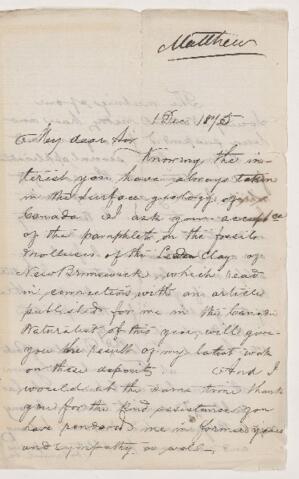 Matthew
1 Dec. 1875
My dear Sir
Knowing the in-
terest you have always taken
in the surface geology of
Canada I ask your acceptce
of the pamphlet on the fossil
Molluscs of the Leda Clay of
New Brunswick, which read
in connection with an article
published for me in the Canad.
Naturalist of this year, will give
you the result of my latest work
on these deposits. And I
would at the same time thank
you for the kind assistance you
have rendered me in former years
and sympathy as well.